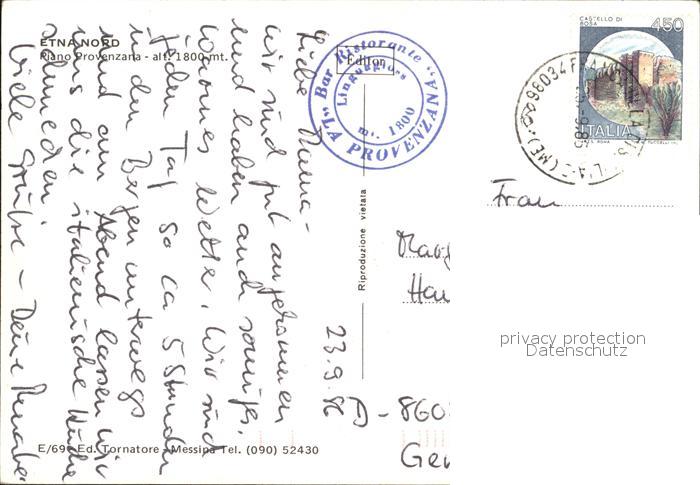 ETNA NORD
Piano Provenzana - alt. 1800 mt.
Bar Ristorante
Linguaglossa
mt. 1800
"LA PROVENZANA"
Editor
CASTELLO DI
ROSA
450
ITALIA
98034
(ME)
Liebe Mama -
wir sind gut angekommen
und haben auch sonniges,
warmes Wetter. Wir sind
jeden Tag so ca 5 Stunden
in den Bergen unterwegs
und am Abend lassen wir
uns die italienische Küche
schmecken.
Viele Grüße - Deine Renate
23.9.86
Riproduzione vietata
Frau
Marg
Hau
D - 860
Ger
privacy protection
Datenschutz
E/69 Ed. Tornatore - Messina Tel. (090) 52430